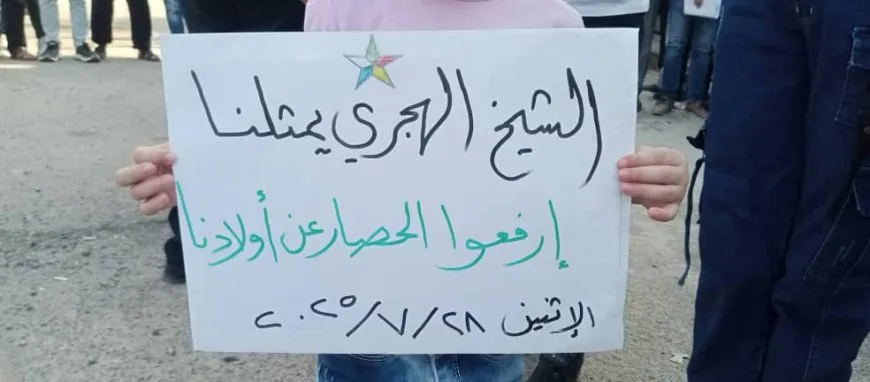 الشيخ الهجري يمثلنا
إرفعوا الحصار عن أولادنا
الإثنين ٢٨/٧/٢٠٢٥